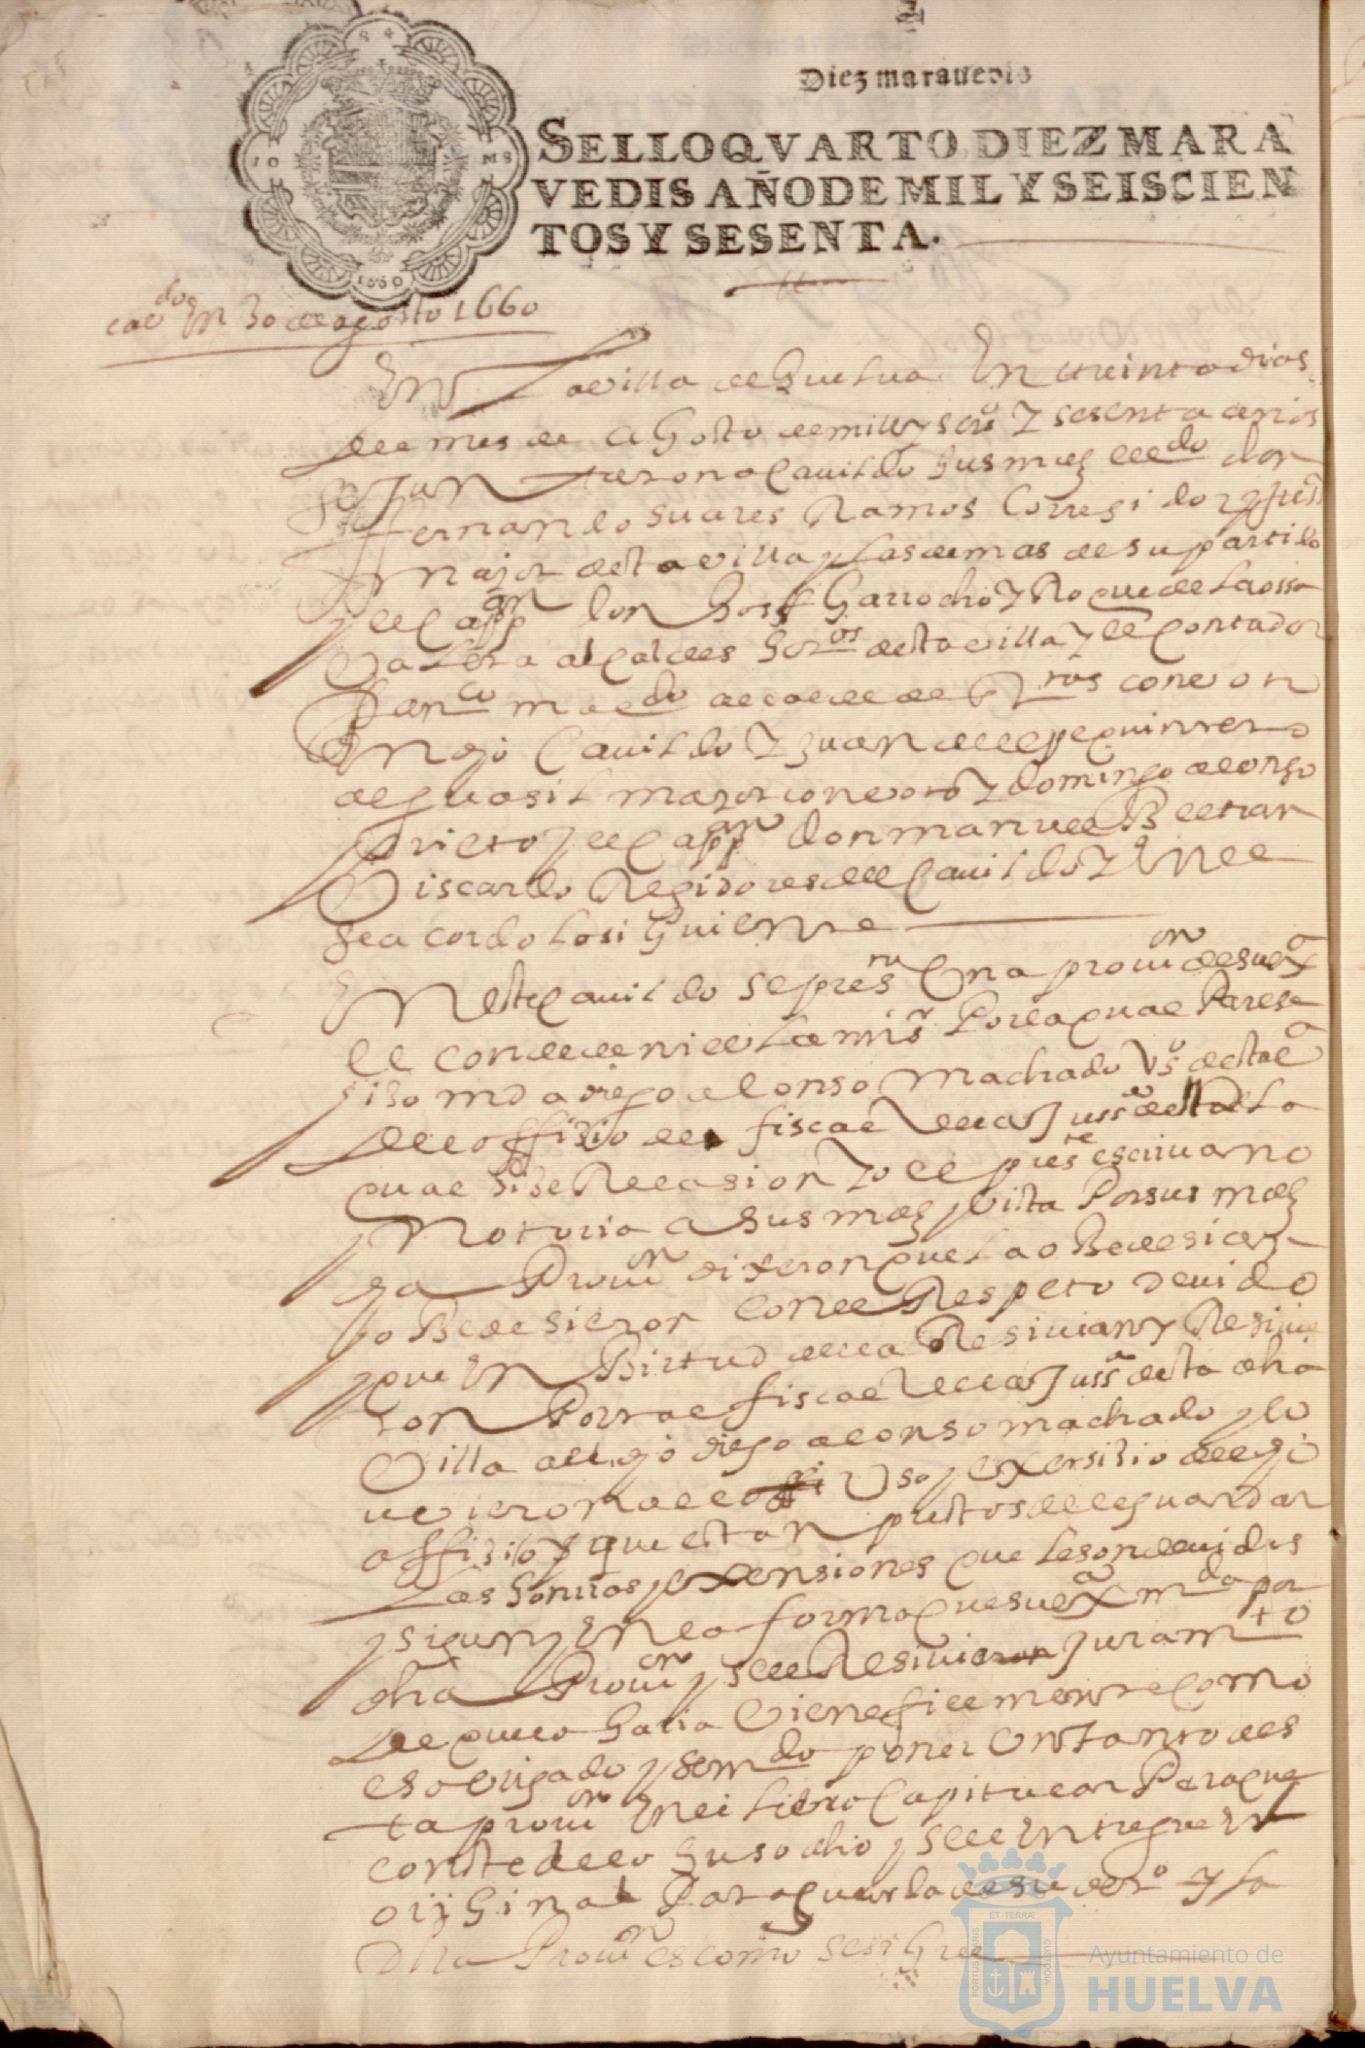 Diez maravedis
SELLOQVARTO DIEZ MARA
VEDIS AÑO DE MIL Y SEISCIEN
TOS Y SESENTA.
1660
cavdo En 30 de agosto 1660
En La villa de Huelva En treinta dias
del mes de Agosto de mill y seiso y sesenta años
se Juntaron a Cavildo sus mds el do don
fernando suares Ramos Corregidor y Justa
major desta villa y las demas de su partido
y el Cappan don Garrocho y Roque de la ossa
Valera alcaldes desta villa y el Contador
Franco maldo alcalde de con voto en
dho Cavildo y Juan quintero
alguasil mayor con voto y domingo alonso
prieto y el Cappan don manuel Beltran
Viscardo Regidores del Cavildo y En el
se acordo lo siguiente
En este Cavildo se presento Una provion de su exa
el conde de niebla mi sr Por la qual Parese
hiso md a diego alonso machado Vso desta va
del offisio de fiscal de la Jussa desta va la
qual hise Relasion yo el preste escrivano
notoria a sus mds y vista Por sus mds
la Provion dixeron que la obedesian y
obedesieron con el Respeto devido
y que En Birtud della Resivian y Resivie
ron Por tal fiscal de la Jussa desta dha
Villa al dho diego alonso machado y lo
uvieron al uso y exersisio del dho
offisio y que estan prestos de le guardar
Las honrras y exensiones que le son devidas
y segun y En la forma que su exa mda por
dha Provion y se le Resivio Juramto
de que lo haria Vien e fielmente como
es obligado y se mdo poner Un tanto des
ta provion En el Libro Capitular Para que
conste de lo suso dho y se le Entregue En
orijinal Para guarda de su dero y la
Dha Provion es como se sigue
PORTUS MARIS
ET TERRÆ
CUSTODIA
Ayuntamiento de
HUELVA